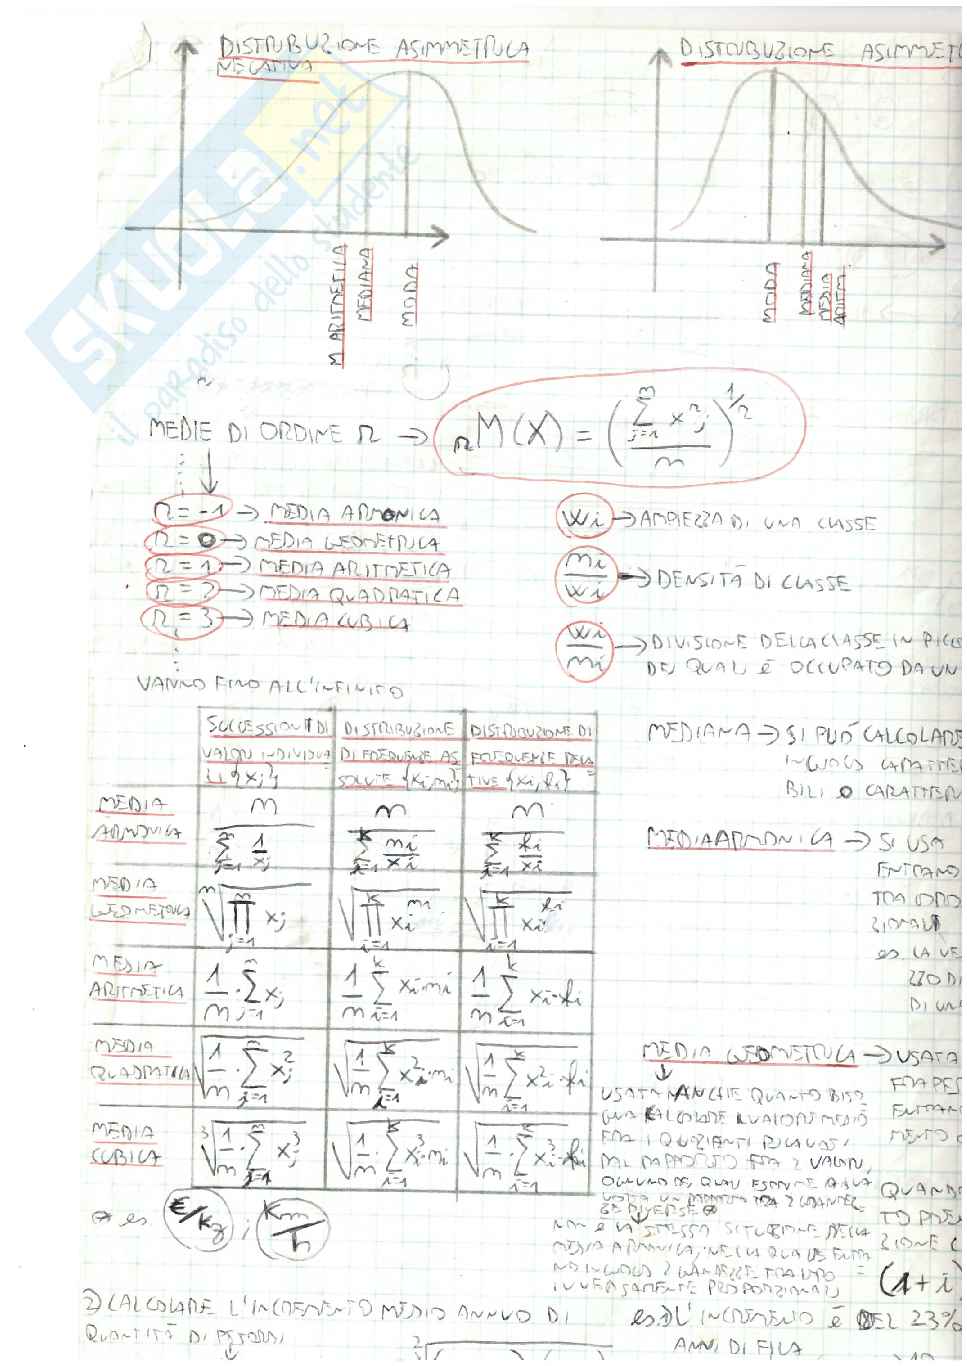 DISTRIBUZIONE ASIMMETRICA
NEGATIVA
DISTRIBUZIONE ASIMMET
M ARITMETICA
MEDIANA
MODA
MODA
MEDIANA
MEDIA
ARITM.
SKUOLA.net
il paradiso dello studente
MEDIE DI ORDINE r → rM(X) = (∑ j=1 n x^r j / n)^1/r
r = -1 → MEDIA ARMONICA
r = 0 → MEDIA GEOMETRICA
r = 1 → MEDIA ARITMETICA
r = 2 → MEDIA QUADRATICA
r = 3 → MEDIA CUBICA
VANNO FINO ALL'INFINITO
wi → AMPIEZZA DI UNA CLASSE
ni/wi → DENSITÀ DI CLASSE
wi/ni → DIVISIONE DELLA CLASSE IN PICC
DEI QUALI È OCCUPATO DA UN
SUCCESSIONI DI
VALORI INDIVIDUA
LI {xj}
DISTRIBUZIONE
DI FREQUENZE AS
SOLUTE {xi, ni}
DISTRIBUZIONE DI
FREQUENZE RELA
TIVE {xi, fi}
MEDIA
ARMONICA
n / ∑ j=1 n 1/xj
n / ∑ i=1 k ni/xi
n / ∑ i=1 k fi/xi
MEDIA
GEOMETRICA
n√∏ j=1 n xj
√∏ i=1 k xi^ni
√∏ i=1 k xi^fi
MEDIA
ARITMETICA
1/n · ∑ j=1 n xj
1/n ∑ i=1 k xi·ni
1/n ∑ i=1 k xi·fi
MEDIA
QUADRATICA
√1/n · ∑ j=1 n x²j
√1/n ∑ i=1 k x²i·ni
√1/n ∑ i=1 k x²i·fi
MEDIA
CUBICA
3√1/n · ∑ j=1 n x³j
√1/n · ∑ i=1 k x³i·ni
√1/n · ∑ i=1 k x³i·fi
es. €/kg ; Km/h
MEDIANA → SI PUÓ CALCOLARE
CARATTER
BILI O CARATTERI
MEDIA ARMONICA → SI USA
ENTRANO
TRA LORO
ZIONALI
es LA VE
ZZO DI
DI UN
MEDIA GEOMETRICA → USATA
USATA ANCHE QUANDO BISO
GNA CALCOLARE IL VALORE MEDIO
FRA I QUOZIENTI RICAVATI
DAL RAPPORTO FRA 2 VALORI,
OGNUNO DEI QUALI ESPRIME A SUA
VOLTA UN RAPPORTO TRA 2 GRANDEZ
ZE DIVERSE
NON È LA STESSA SITUAZIONE DELLA
MEDIA ARMONICA, NELLA QUALE ENTRA
NO IN GIOCO 2 GRANDEZZE TRA LORO
INVERSAMENTE PROPORZIONALI
ENTRAN
MENTO
QUANDO
TO
ZIONE
= (1+i)
2) CALCOLARE L'INCREMENTO MEDIO ANNUO DI
QUANTITÀ DI
es.1) L'INCREMENTO È DEL 23%
ANNI DI FILA